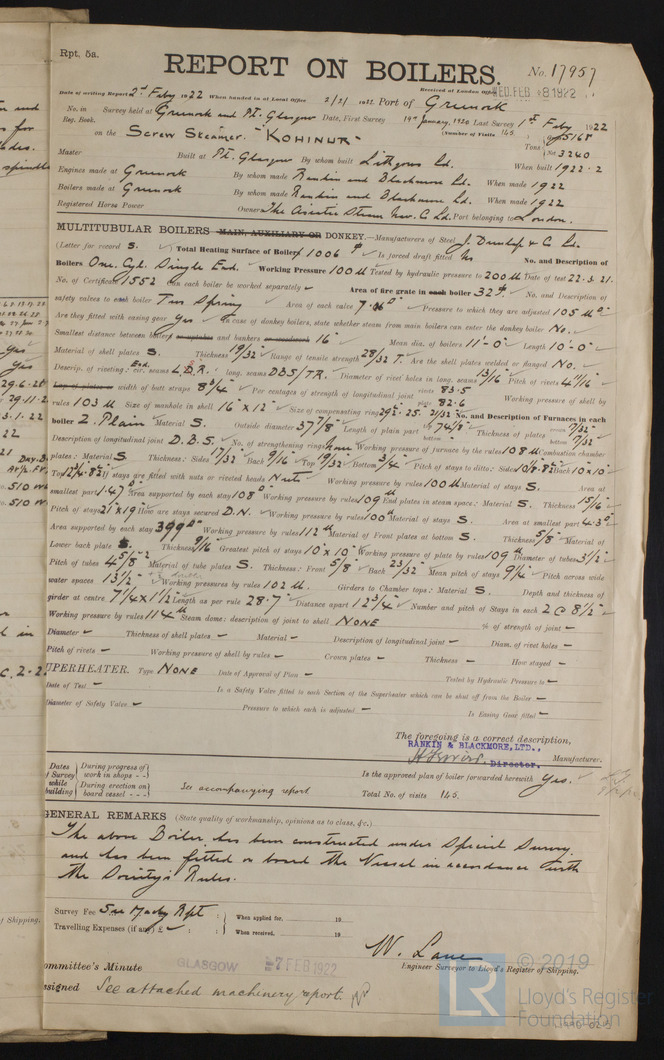 Rpt. 5a.
REPORT ON BOILERS.
No. 17957
Date of writing Report 2nd Feby 1922 When handed in at Local Office 2/2/1922 Port of Greenock
Received at London Office WED. FEB -8 1922
No. in Reg. Book. Survey held at Greenock and Pt. Glasgow Date, First Survey 19th January, 1920 Last Survey 1st Feby 1922
(Number of Visits 145.)
on the Screw Steamer. "KOHINUR" Tons Gross 5168 Net 3240
Master Built at Pt. Glasgow By whom built Lithgows Ld. When built 1922-2
Engines made at Greenock By whom made Rankin and Blackmore Ld. When made 1922
Boilers made at Greenock By whom made Rankin and Blackmore Ld. When made 1922
Registered Horse Power Owners The Asiatic Steam Nav. C. Ld. Port belonging to London.
MULTITUBULAR BOILERS MAIN, AUXILIARY OR DONKEY.—Manufacturers of Steel J. Dunlop & Co Ld.
(Letter for record S. ) Total Heating Surface of Boilers 1006 Is forced draft fitted No No. and Description of
Boilers One. Cyl. Single End. Working Pressure 100 Tested by hydraulic pressure to 200 Date of test 22.3.21.
No. of Certificate 1552 Can each boiler be worked separately Area of fire grate in each boiler 32 No. and Description of
safety valves to each boiler Two Spring Area of each valve Pressure to which they are adjusted 105
Are they fitted with easing gear Yes In case of donkey boilers, state whether steam from main boilers can enter the donkey boiler No.
Smallest distance between boilers or uptakes and bunkers or woodwork 16" Mean dia. of boilers 11'-0" Length 10'-0"
Material of shell plates S. Thickness 19/32 Range of tensile strength 28/32 T. Are the shell plates welded or flanged No.
Descrip. of riveting: cir. seams End. L.D.R. long. seams DBS/TR. Diameter of rivet holes in long. seams 13/16 Pitch of rivets 4 11/16
Lap of plates or width of butt straps 8 3/4 Per centages of strength of longitudinal joint rivets 83.5 plate 82.6 Working pressure of shell by
rules 103 Size of manhole in shell 16" x 12" Size of compensating ring No. and Description of Furnaces in each
boiler 2. Plain Material S. Outside diameter 37 7/8 Length of plain part top 74 7/8 bottom Thickness of plates crown 17/32 bottom 17/32
Description of longitudinal joint D.B.S. No. of strengthening rings None Working pressure of furnace by the rules 108 Combustion chamber
plates: Material S. Thickness: Sides 17/32 Back 9/16 Top 19/32 Bottom 3/4 Pitch of stays to ditto: Sides Back 10 x 10
Top If stays are fitted with nuts or riveted heads Nuts Working pressure by rules 100 Material of stays S. Area at
smallest part 1.47 Area supported by each stay 108 Working pressure by rules 109 End plates in steam space: Material S. Thickness 15/16
Pitch of stays 21 x 19 How are stays secured D.N. Working pressure by rules 100 Material of stays S. Area at smallest part 4.3
Area supported by each stay 399 Working pressure by rules 112 Material of Front plates at bottom S. Thickness 5/8 Material of
Lower back plate S. Thickness 9/16 Greatest pitch of stays 10 x 10 Working pressure of plate by rules 109 Diameter of tubes 3 1/2
Pitch of tubes 4 5/8 Material of tube plates S. Thickness: Front 5/8 Back 23/32 Mean pitch of stays 9 1/4 Pitch across wide
water spaces 13 1/2 Working pressures by rules 102 Girders to Chamber tops: Material S. Depth and thickness of
girder at centre 7 1/4 x 1 1/2 Length as per rule 28.7 Distance apart 12 3/4 Number and pitch of Stays in each 2 @ 8 1/2
Working pressure by rules 114 Steam dome: description of joint to shell NONE % of strength of joint —
Diameter — Thickness of shell plates — Material — Description of longitudinal joint — Diam. of rivet holes —
Pitch of rivets — Working pressure of shell by rules — Crown plates — Thickness — How stayed —
UPERHEATER. Type NONE Date of Approval of Plan — Tested by Hydraulic Pressure to —
Date of Test — Is a Safety Valve fitted to each Section of the Superheater which can be shut off from the Boiler —
Diameter of Safety Valve — Pressure to which each is adjusted — Is Easing Gear fitted —
The foregoing is a correct description,
RANKIN & BLACKMORE, LTD.,
Director. Manufacturer.
Dates of Survey while building During progress of work in shops - - During erection on board vessel - - - See accompanying report
Is the approved plan of boiler forwarded herewith Yes.
Total No. of visits 145.
GENERAL REMARKS (State quality of workmanship, opinions as to class, &c.)
The above Boiler has been constructed under Special Survey
and has been fitted on board the Vessel in accordance with
the Society's Rules.
Survey Fee See Machy Rpt When applied for, 19
Travelling Expenses (if any) £ When received, 19
W. Lane
Engineer Surveyor to Lloyd's Register of Shipping.
ommittee's Minute GLASGOW 7 FEB 1922
ssigned See attached machinery report.
© 2019
LR
Lloyd's Register
Foundation